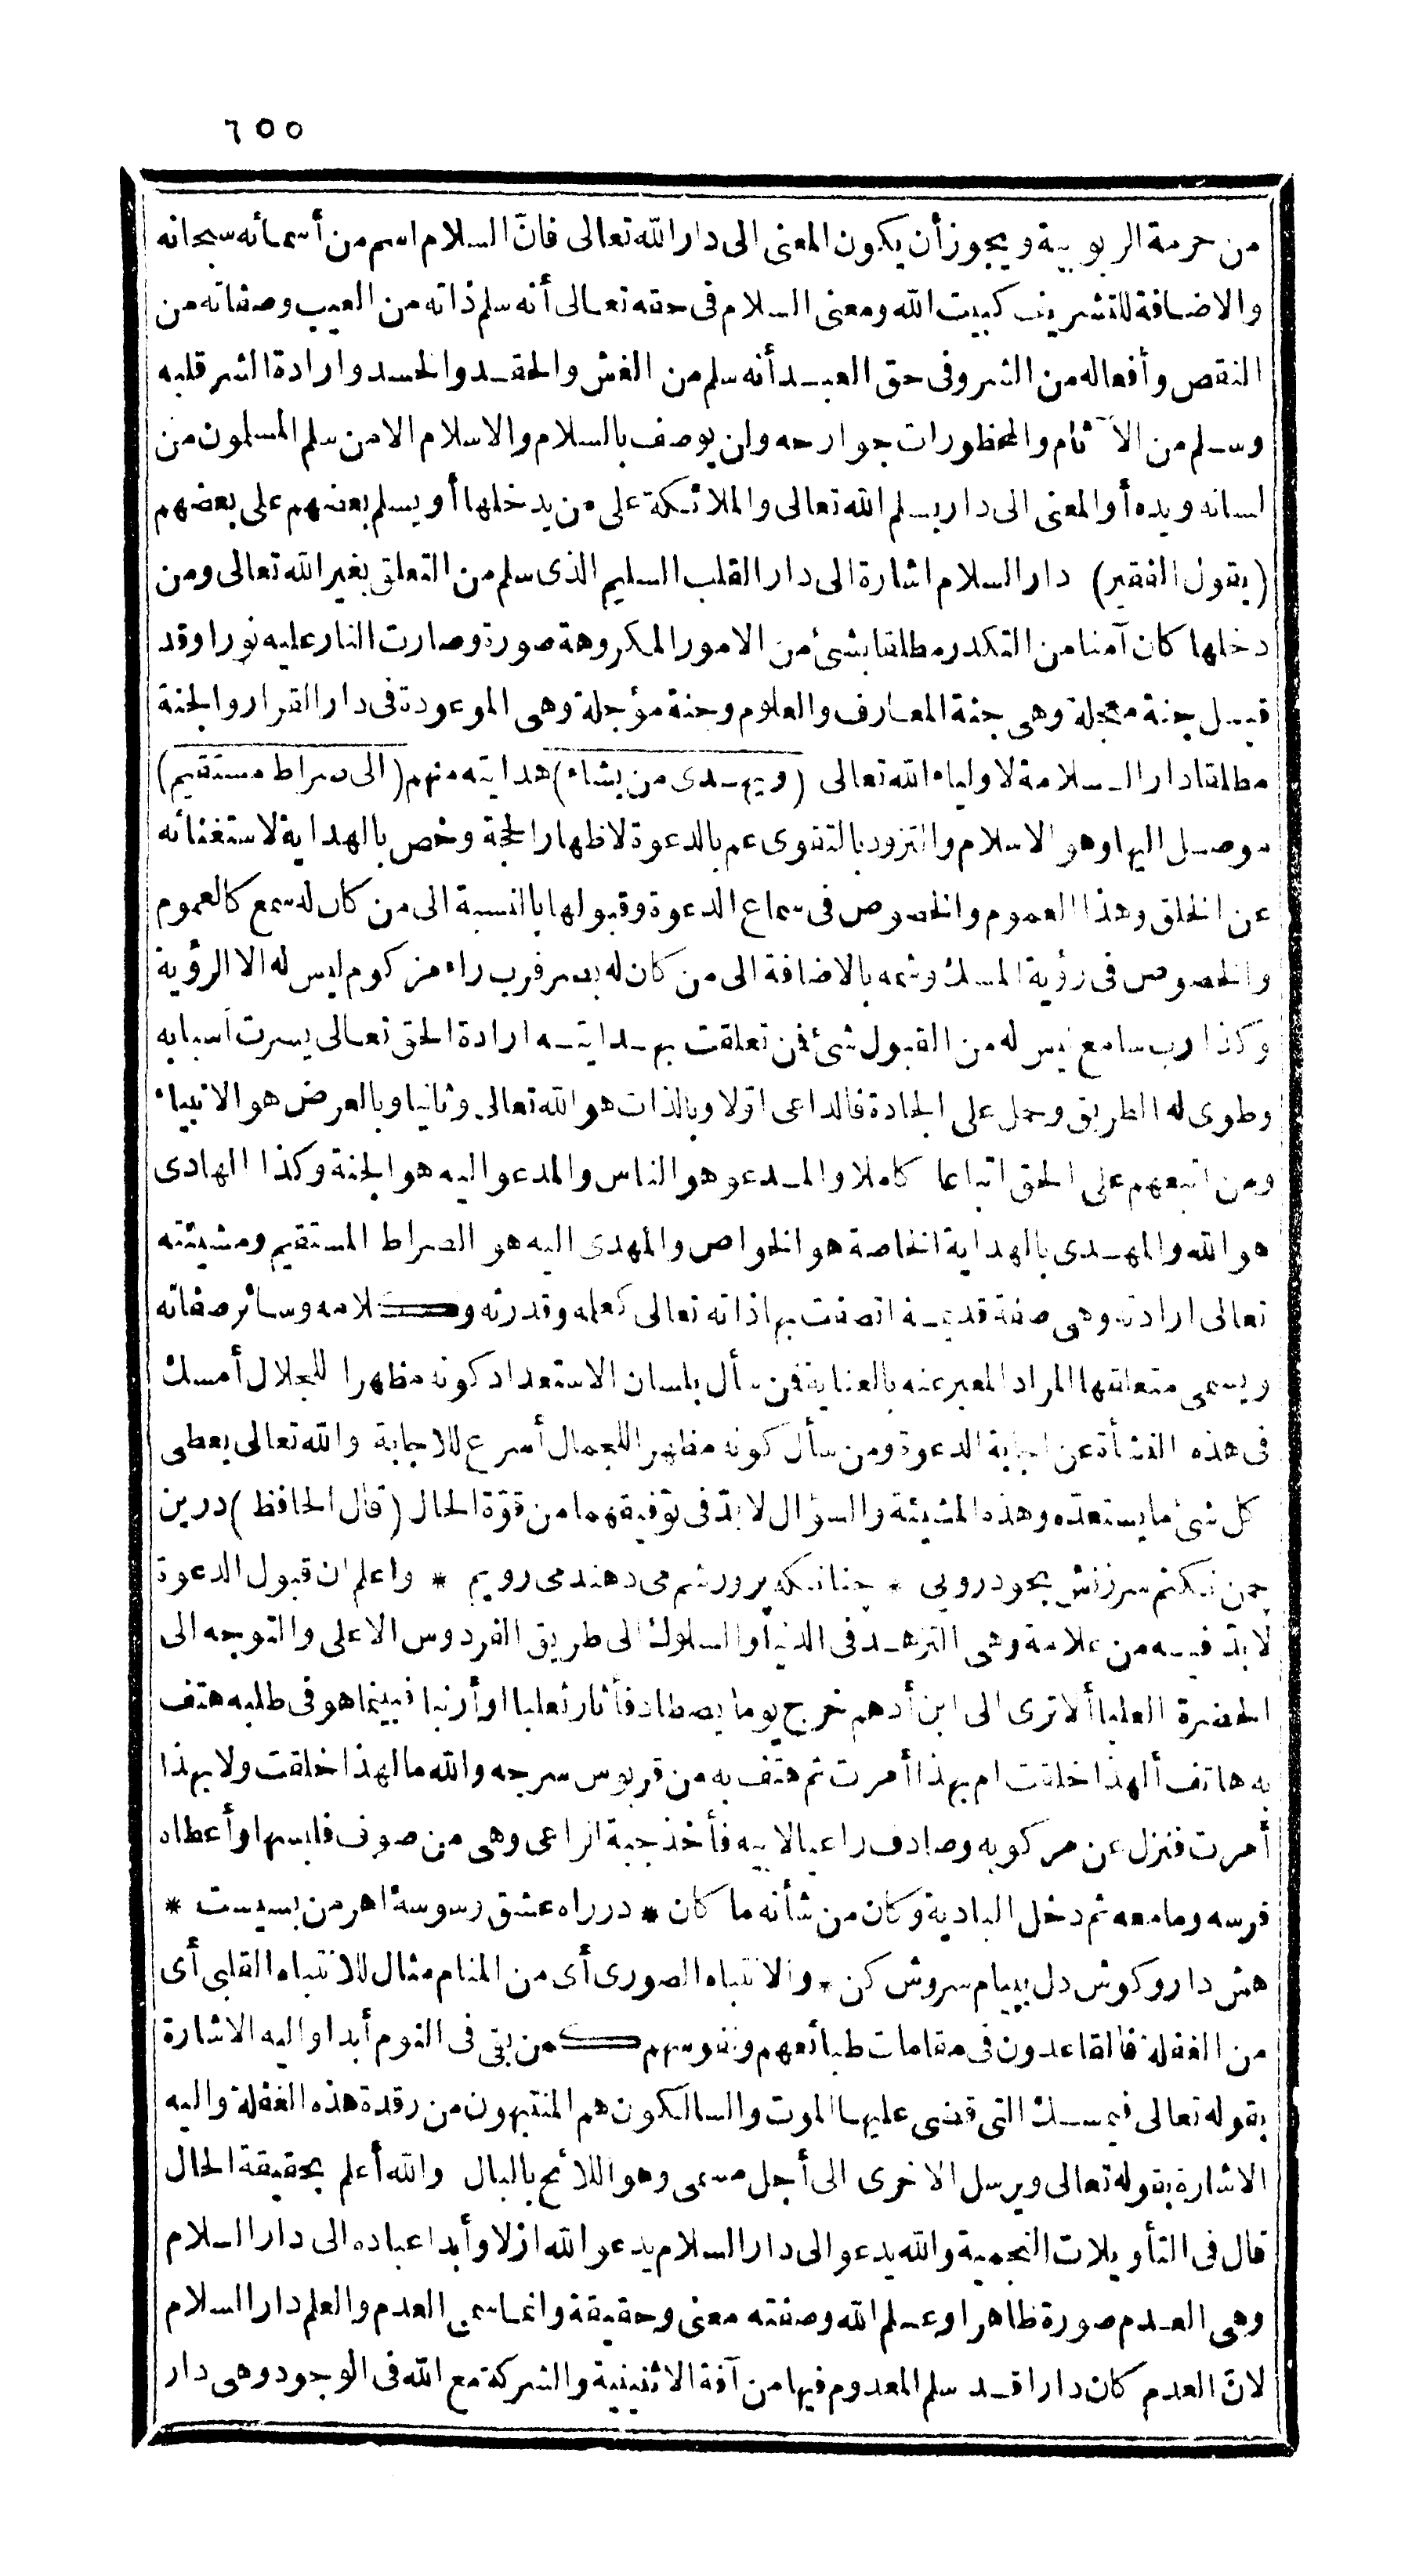 ٦٥٥
من حرمة الربوبية ويجوز أن يكون المعنى الى دار الله تعالى فانّ السلام اسم من أسمائه سبحانه
والاضافة للتشريف كبيت الله ومعنى السلام فى حقه تعالى أنه سلم ذاته من العيب وصفاته من
النقص وأفعاله من الشر وفى حق العبد أنه سلم من الغش والحقد والحسد وارادة الشر قلبه
وسلم من الآثام والمحظورات جوارحه ولن يوصف بالسلام والاسلام الا من سلم المسلمون من
لسانه ويده أو المعنى الى دار يسلم الله تعالى والملائكة على من يدخلها أو يسلم بعضهم على بعضهم
(يقول الفقير) دار السلام اشارة الى دار القلب السليم الذى سلم من التعلق بغير الله تعالى ومن
دخلها كان آمنا من التكدر مطلقا بشئ من الامور المكروهة صورة وصارت النار عليه نورا وقد
قيل جنة معجلة وهى جنة المعارف والعلوم وجنة مؤجلة وهى الموعودة فى دار القرار والجنة
مطلقا دار السلامة لاولياء الله تعالى (ويهدى من يشاء) هدايته منهم (الى صراط مستقيم)
موصل اليها وهو الاسلام والتزود بالتقوى عم بالدعوة لاظهار الحجة وخص بالهداية لاستغنائه
عن الخلق وهذا العموم والخصوص فى سماع الدعوة وقبولها بالنسبة الى من كان له سمع كالعموم
والخصوص فى رؤية المسك وشمه بالاضافة الى من كان له بصر فرب راء مزكوم ليس له الا الرؤية
وكذا رب سامع ليس له من القبول شئ فمن تعلقت بهدايته ارادة الحق تعالى يسرت أسبابه
وطوى له الطريق وحمل على الجادة فالداعى اوّلا وبالذات هو الله تعالى وثانيا وبالعرض هو الانبياء
ومن اتبعهم على الحق اتباعا كاملا والمدعو هو الناس والمدعو اليه هو الجنة وكذا الهادى
هو الله والمهدى بالهداية الخاصة هو الخواص والمهدى اليه هو الصراط المستقيم ومشيئته
تعالى ارادته وهى صفة قديمة اتصفت بها ذاته تعالى كعلمه وقدرته وكلامه وسائر صفاته
ويسمى متعلقها المراد المعبر عنه بالعناية فمن سأل بلسان الاستعداد كونه مظهرا للجلال أمسك
فى هذه النشأة عن اجابة الدعوة ومن سأل كونه مظهرا للجمال أسرع للاجابة والله تعالى يعطى
كل شئ ما يستعده وهذه المشيئة والسؤال لا بدّ فى توفيقهما من قوّة الحال (قال الحافظ) درين
چمن نكنم سرزنش بخودرويى * چنانكه پرورشم مى دهند مى رويم * واعلم ان قبول الدعوة
لا بدّ فيه من علامة وهى التزهد فى الدنيا والسلوك الى طريق الفردوس الاعلى والتوجه الى
الحضرة العليا ألا ترى الى ابن أدهم خرج يوما يصطاد فأثار ثعلبا او أرنبا فبينما هو فى طلبه هتف
به هاتف ألهذا خلقت ام بهذا أمرت ثم هتف به من قربوس سرجه والله ما لهذا خلقت ولا بهذا
أمرت فنزل عن مركوبه وصادف راعيا لابيه فأخذ جبة الراعى وهى من صوف فلبسها وأعطاه
فرسه وما معه ثم دخل البادية وكان من شأنه ما كان * درراه عشق وسوسهٔ اهرمن بسيست *
هش دار وكوش دل بپيام سروش كن * والانتباه الصورى أى من المنام مثال للانتباه القلبى أى
من الغفلة فالقاعدون فى مقامات طبائعهم ونفوسهم كمن بقى فى النوم أبدا واليه الاشارة
بقوله تعالى فيمسك التى قضى عليها الموت والسالكون هم المنتبهون من رقدة هذه الغفلة واليه
الاشارة بقوله تعالى ويرسل الاخرى الى أجل مسمى وهو اللائح بالبال والله أعلم بحقيقة الحال
قال فى التأويلات النجمية والله يدعو الى دار السلام يدعو الله ازلا وأبدا عباده الى دار السلام
وهى العدم صورة ظاهرا وعلم الله وصفته معنى وحقيقة وانما سمى العدم والعلم دار السلام
لانّ العدم كان دارا قد سلم المعدوم فيها من آفة الاثنينية والشركة مع الله فى الوجود وهى دار